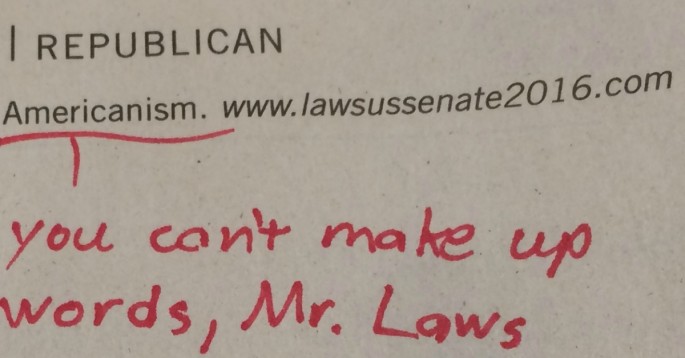 | REPUBLICAN
Americanism. www.lawsussenate2016.com
you can't make up
words, Mr. Laws